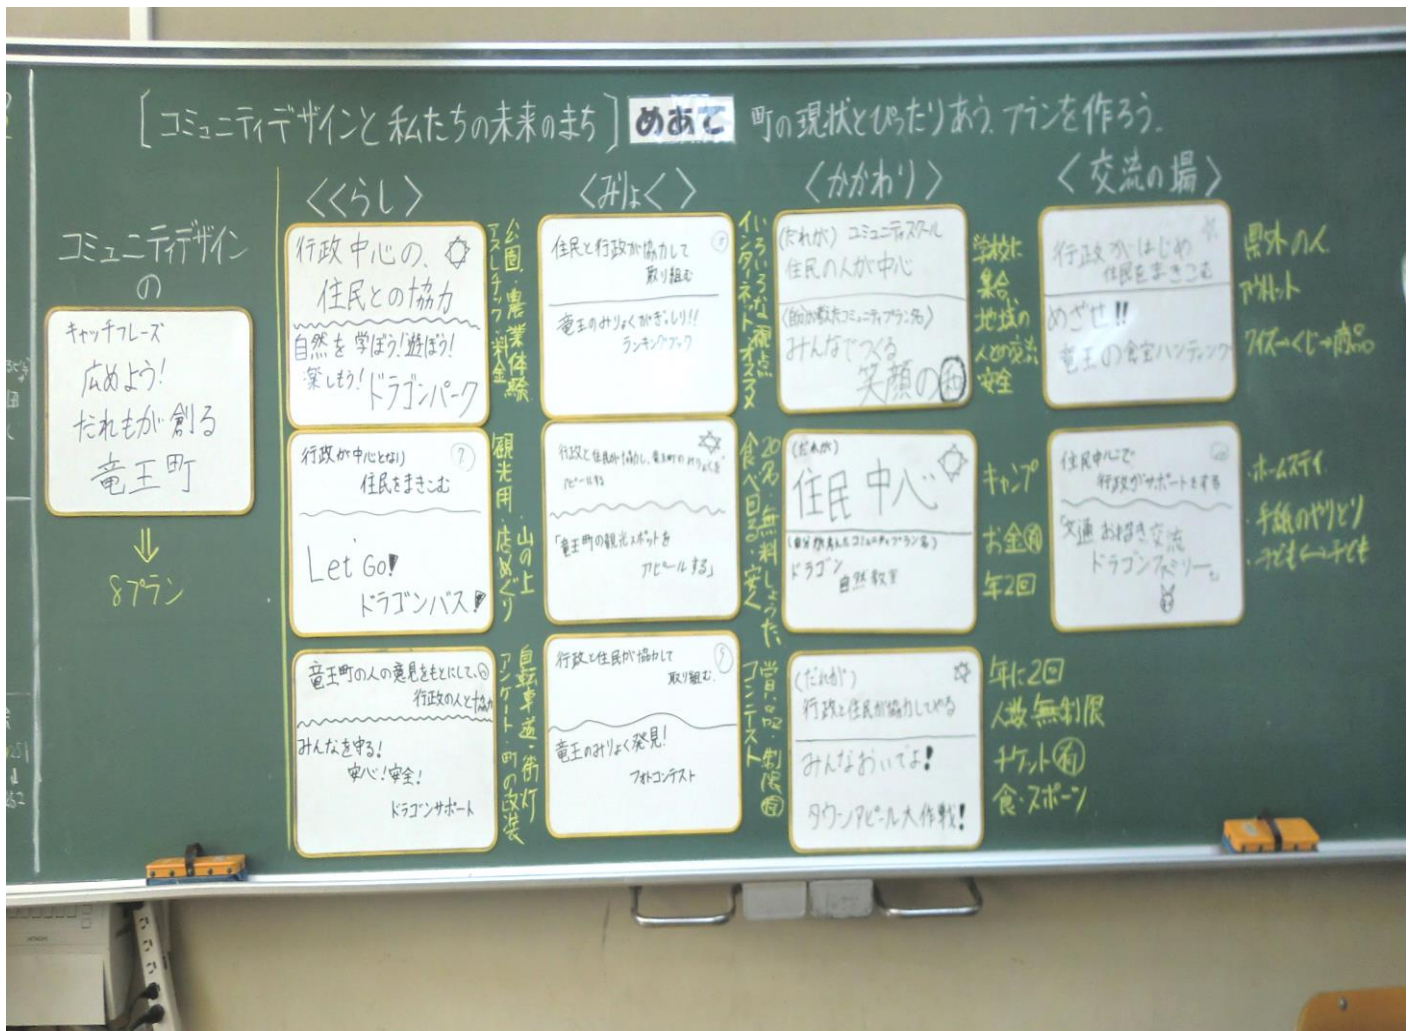 [コミュニティデザインと私たちの未来のまち] めあて 町の現状とぴったりあう、プランを作ろう。
コミュニティデザイン
の
キャッチフレーズ
広めよう!
だれもが創る
竜王町
8プラン
〈くらし〉
行政中心の、
住民との協力
自然を学ぼう!遊ぼう!
楽しもう!ドラゴンパーク
公園・農業体験
アスレチック・料金
行政が中心となり
住民をまきこむ
Let' Go!
ドラゴンバス!
山の上
観光用・店めぐり
竜王町の人の意見をもとにして、
行政の人と協力
みんなを守る!
安心!安全!
ドラゴンサポート
自転車道・街灯
アンケート・町の改装
〈みりょく〉
住民と行政が協力して
取り組む
竜王のみりょくがぎっしり!!
ランキングブック
いろいろな視点
インターネット・オススメ
行政と住民が協力し、竜王町のみりょくを
アピールする
「竜王町の観光スポットを
アピールする」
20名・無料しょうたい
食べ回る・安く
行政と住民が協力して
取り組む。
竜王のみりょく発見!
フォトコンテスト
賞品・制限有
コンテスト
〈かかわり〉
(だれが) コミュニティスクール
住民の人が中心
(自分が考えたコミュニティプラン名)
みんなでつくる
笑顔の
学校に
集合
地域の
人との交流
安全
(だれが)
住民中心
(自分が考えたコミュニティプラン名)
ドラゴン
自然教室
キャンプ
お金有
年2回
(だれが)
行政と住民が協力してやる
みんなおいでよ!
タウンアピール大作戦!
年に2回
人数無制限
チケット有
食・スポーツ
〈交流の場〉
行政がはじめ
住民をまきこむ
めざせ!!
竜王の食宝ハンティング
県外の人
アウトレット
クイズ→くじ→商品
住民中心で
行政がサポートをする
ドラゴンファミリー
・ホームステイ
・手紙のやりとり
・子ども←→子ども